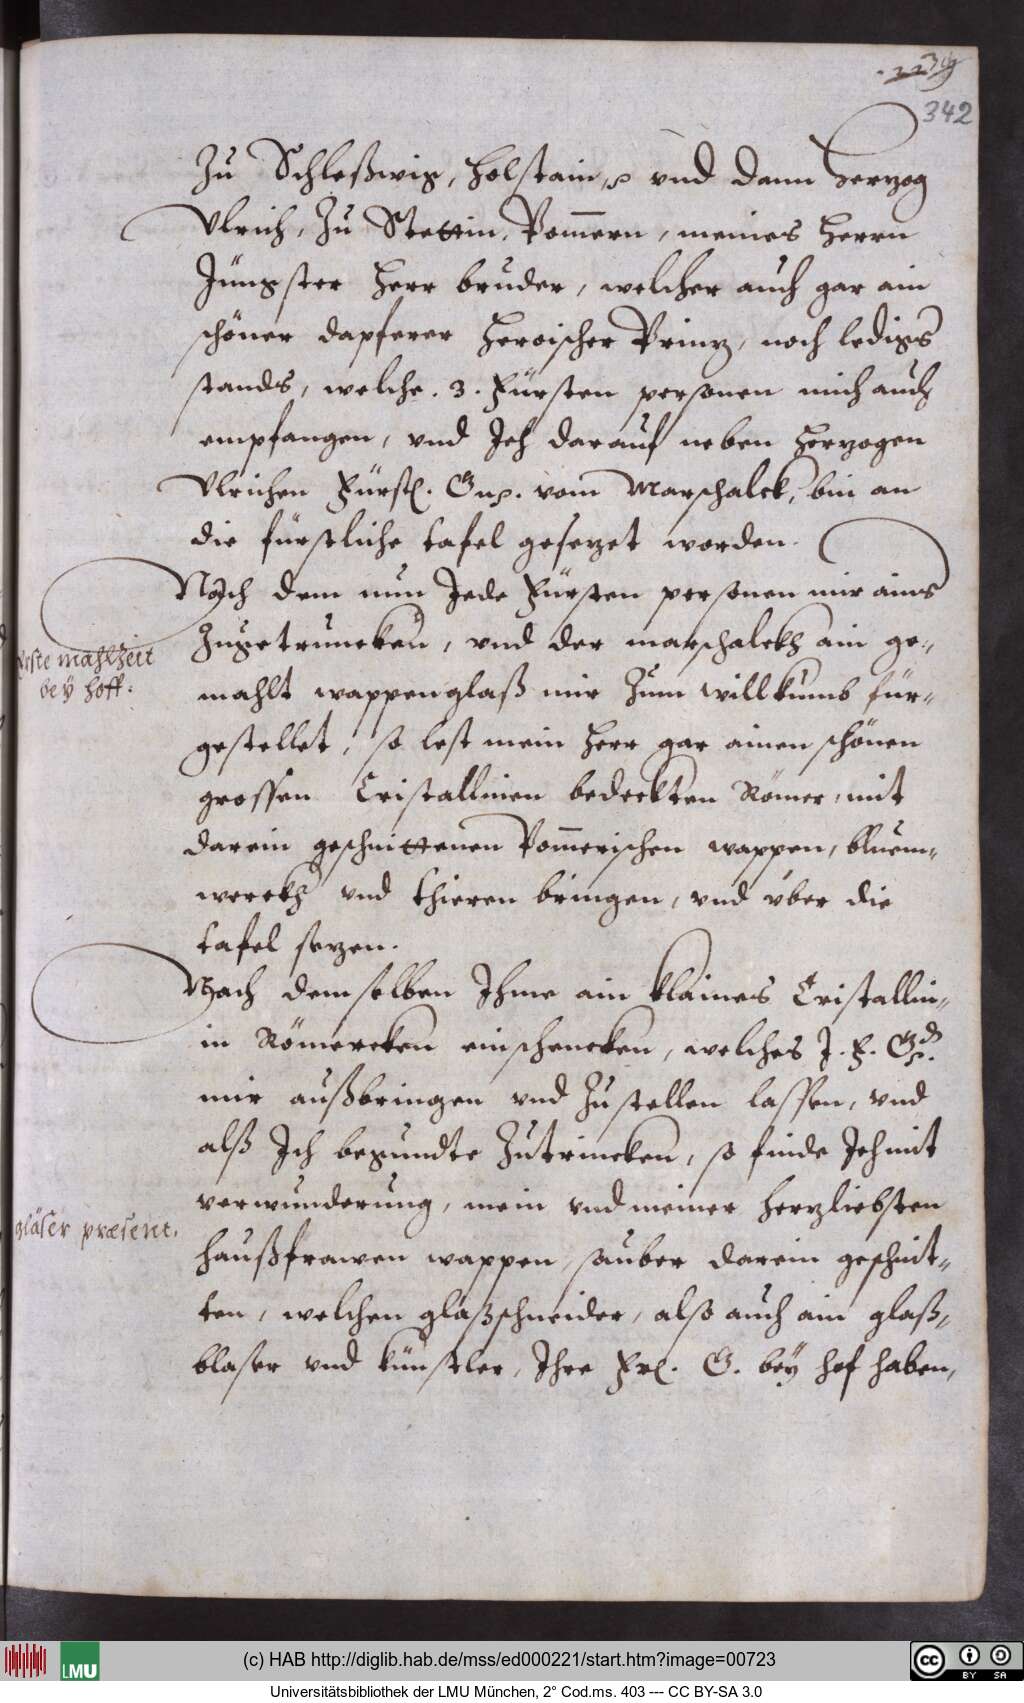 342
Zu Schleßwig, Holstain, und dann Herzog
Ulrich, Zu Stettin, Pom̄ern, meines Herrn
Jüngster Herr bruder, welcher auch gar ain
schöner dapferer Heroischer Prinz, noch ledigs
stands, welche .3. Fürsten personen mich auch
empfangen, und Ich darauf neben Herzogen
Ulrichen Fürstl. Gn. vom Marschalck, bin an
die fürstliche tafel gesezet worden.
Nach dem nun Jede Fürsten personen mir ains
Zugetruncken, und der marschalckh ain ge-
Erste mahlzeit
bey hoff:
mahlt wappenglaß mir Zum willkumb für-
gestellet, so lest mein Herr gar ainen schönen
grossen Cristallinen bedeckten Römer, mit
darein geschnittenen Pom̄erischen wappen, bluem-
werckh und thieren bringen, und über die
tafel sezen.
Nach demselben Ihme ain klaines Cristallin-
in Römercken einschencken, welches J. F. Gd.
mir außbringen und Zustellen lassen, und
alß Ich begundte Zutrincken, so finde Ich mit
verwunderung, mein und meiner herzliebsten
gläser præsent.
haußfrawen wappen, sauber darein geschnit-
ten, welchen glaßschneider, also auch ain glaß-
blaser und künstler, Ihre Frl. G. bey hof haben,
(c) HAB http://diglib.hab.de/mss/ed000221/start.htm?image=00723
LMU
cc BY SA
Universitätsbibliothek der LMU München, 2° Cod.ms. 403 --- CC BY-SA 3.0